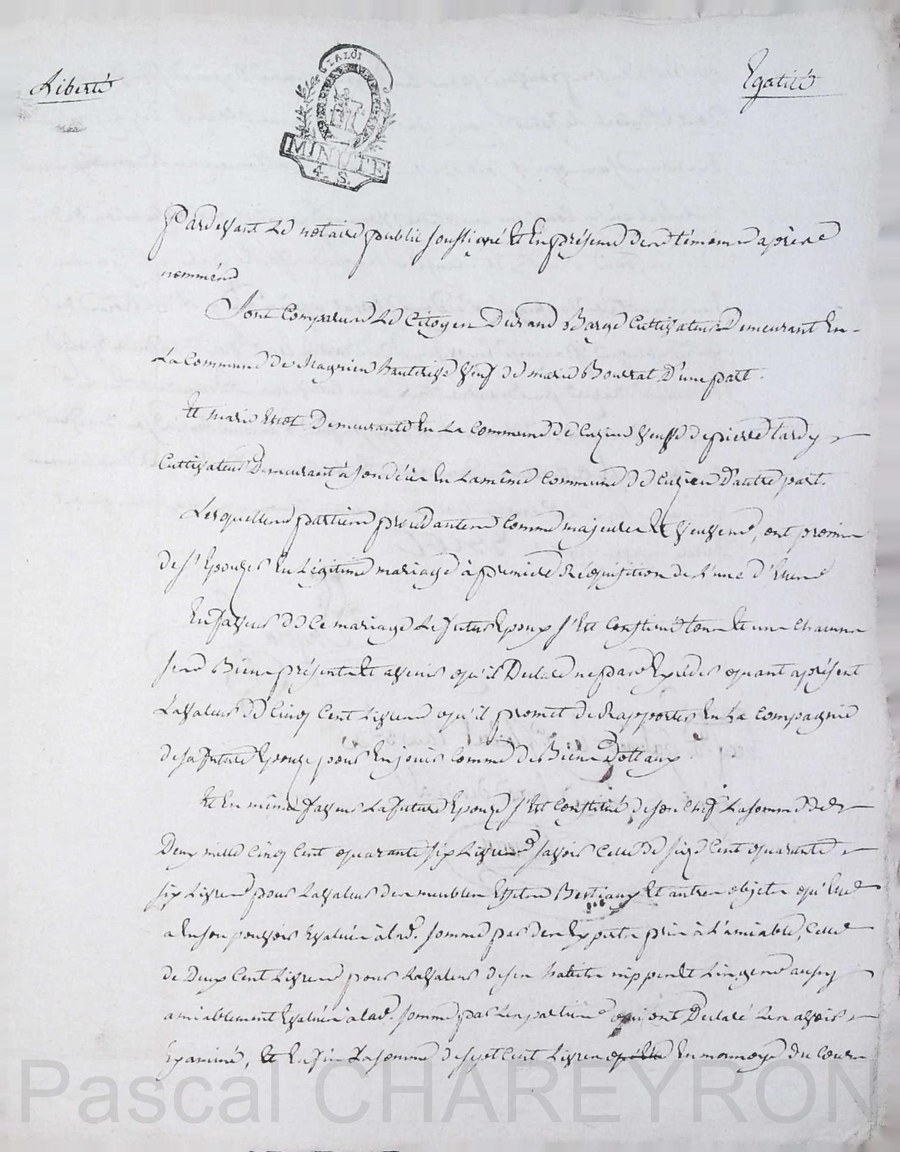 Liberté
Egalité
LA LOI
MINUTE
4. S.
Pardevant Le notaire public soussigné Et En présence des témoins après
nommés
Sont Comparus Le Citoyen Durand Barge Cultivateur Demeurant En
La Commune de Magnieu hauterive Veuf de marie Bourrat D'une part.
Et marie Demeurante En La Commune de Cuzieu Veuve de pierre tardy
Cultivateur Demeurant à son décès En La même Commune de Cuzieu D'autre part.
Lesquelles parties procédantes Comme majeures Et ont promis
de s'Epouser En Légitime mariage à première Réquisition de L'une d'Elles
En faveur de Ce mariage Le futur Epoux s'Est Constitué tous Et un Chacuns
ses Biens présents Et avenir qu'il Déclare ne pas Excéder quant à présent
La valeur de Cinq Cent Livres qu'il promet de Rapporter En La Compagnie
de sa future Epouze pour En jouir Comme de Biens Dottaux
Et En même faveur La future Epouze s'Est Constitué de son Chef La somme de
Deux mille Cinq Cent quarante six Livres savoir Celle de seize Cent quarante
six Livres pour La valeur des meubles Effets Bestiaux Et autres objets qu'Elle
a En son pouvoir Evalués à lad. somme par des Experts pris à L'amiable, Celle
de Deux Cent Livres pour La valeur de ses habits nippes Et Linges aussy
amiablement Evalués à lad. somme par Les parties qui ont Déclaré Les avoir
Examiné, Et Enfin La somme de sept Cent Livres En monnoye du Cours
Pascal CHAREYRON